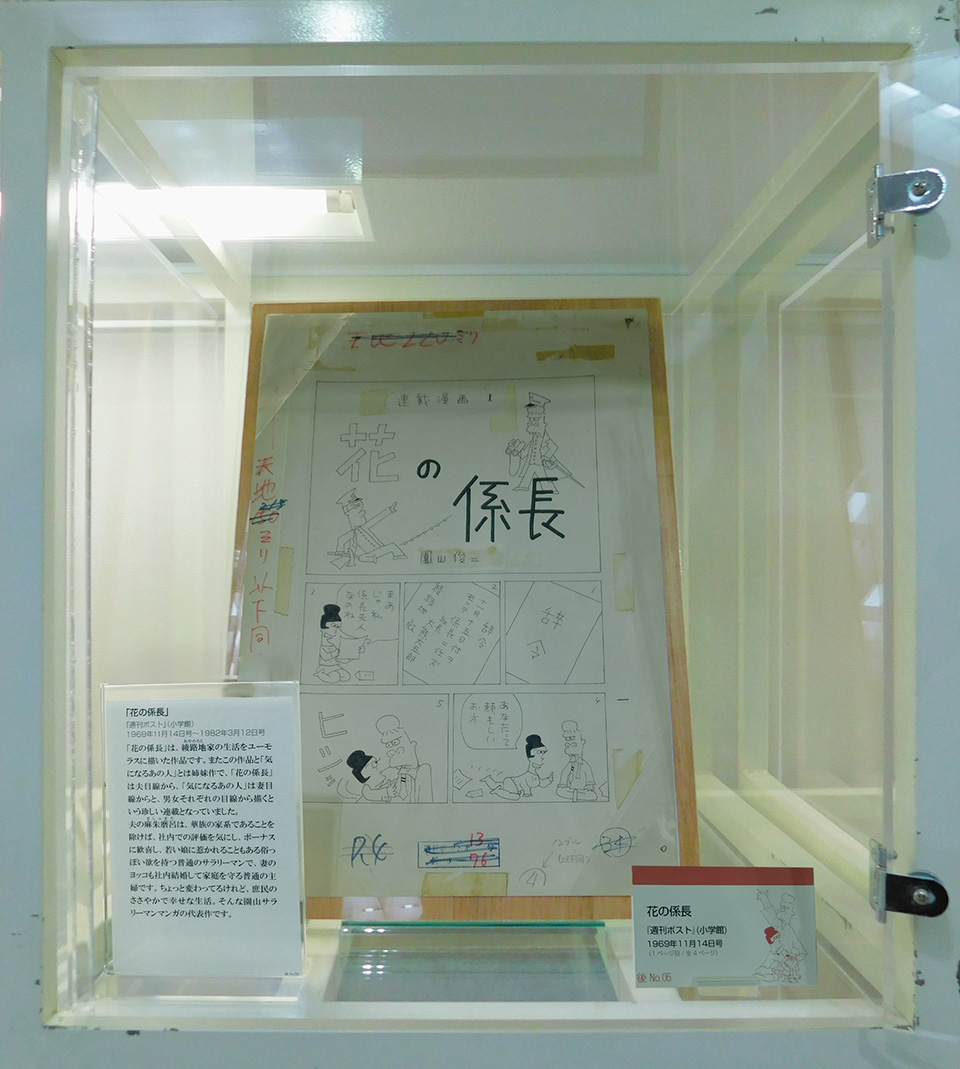 連載漫画 1
花の係長
園山俊二
天地
ミリ以下同
1
辞令
2
辞令
十一月十五日付ヲ
モッテ係長ニ任ズ
綾路地
3
まあ
じゃ私
係長夫人
なのね
4
あなたって
頼もしい
お方
5
ヒシッ
P.4
13
76
34
4
「花の係長」
『週刊ポスト』(小学館)
1969年11月14日号~1982年3月12日号
「花の係長」は、綾路地家の生活をユーモ
ラスに描いた作品です。またこの作品と「気
になるあの人」とは姉妹作で、「花の係長」
は夫目線から、「気になるあの人」は妻目
線からと、男女それぞれの目線から描くと
いう珍しい連載となっていました。
夫の麻朱磨呂は、華族の家系であることを
除けば、社内での評価を気にし、ボーナス
に歓喜し、若い娘に惹かれることもある俗っ
ぽい欲を持つ普通のサラリーマンで、妻の
ヨッコも社内結婚して家庭を守る普通の主
婦です。ちょっと変わってるけれど、庶民の
ささやかで幸せな生活。そんな園山サラ
リーマンマンガの代表作です。
花の係長
『週刊ポスト』(小学館)
1969年11月14日号
(1ページ目/全4ページ)
後 No.05